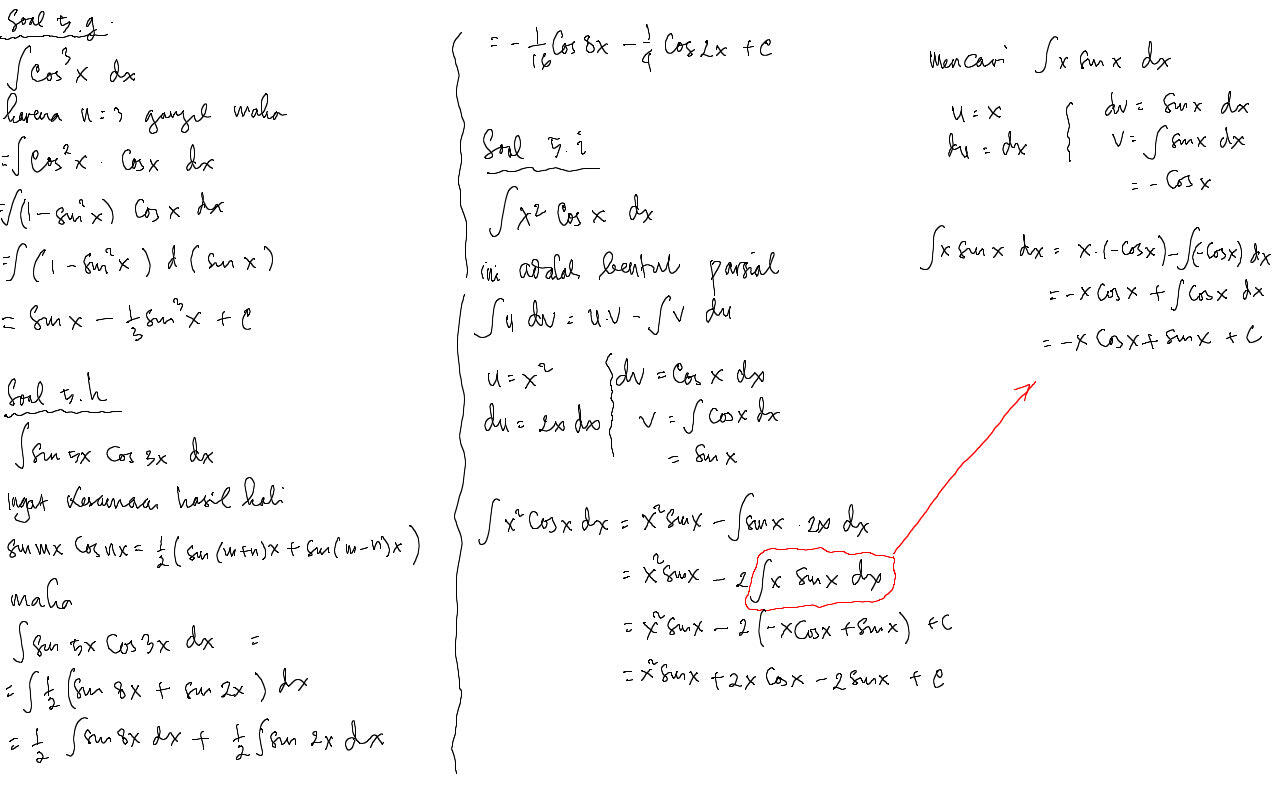 Soal 5.g.
∫cos³x dx
karena n=3 ganjil maka
=∫cos²x . cosx dx
=∫(1-sin²x) cos x dx
=∫(1-sin²x) d(sin x)
= sin x - 1/3 sin³x + c
Soal 5.h
∫sin 5x cos 3x dx
Ingat kesamaan hasil kali
sin mx cos nx = 1/2 (sin(m+n)x + sin(m-n)x)
maka
∫sin 5x cos 3x dx =
= ∫1/2 (sin 8x + sin 2x) dx
= 1/2 ∫sin 8x dx + 1/2 ∫sin 2x dx
= -1/16 cos 8x - 1/4 cos 2x + c
Soal 5.i
∫x² cos x dx
ini adalah bentuk parsial
∫u dv = u.v - ∫v du
u = x² dv = cos x dx
du = 2x dx v = ∫cos x dx
= sin x
∫x² cos x dx = x² sin x - ∫sin x . 2x dx
= x² sin x - 2∫x sin x dx
= x² sin x - 2(-x cos x + sin x) + c
= x² sin x + 2x cos x - 2 sin x + c
mencari ∫x sin x dx
u = x dv = sin x dx
du = dx v = ∫sin x dx
= -cos x
∫x sin x dx = x.(-cos x) - ∫(-cos x) dx
= -x cos x + ∫cos x dx
= -x cos x + sin x + c